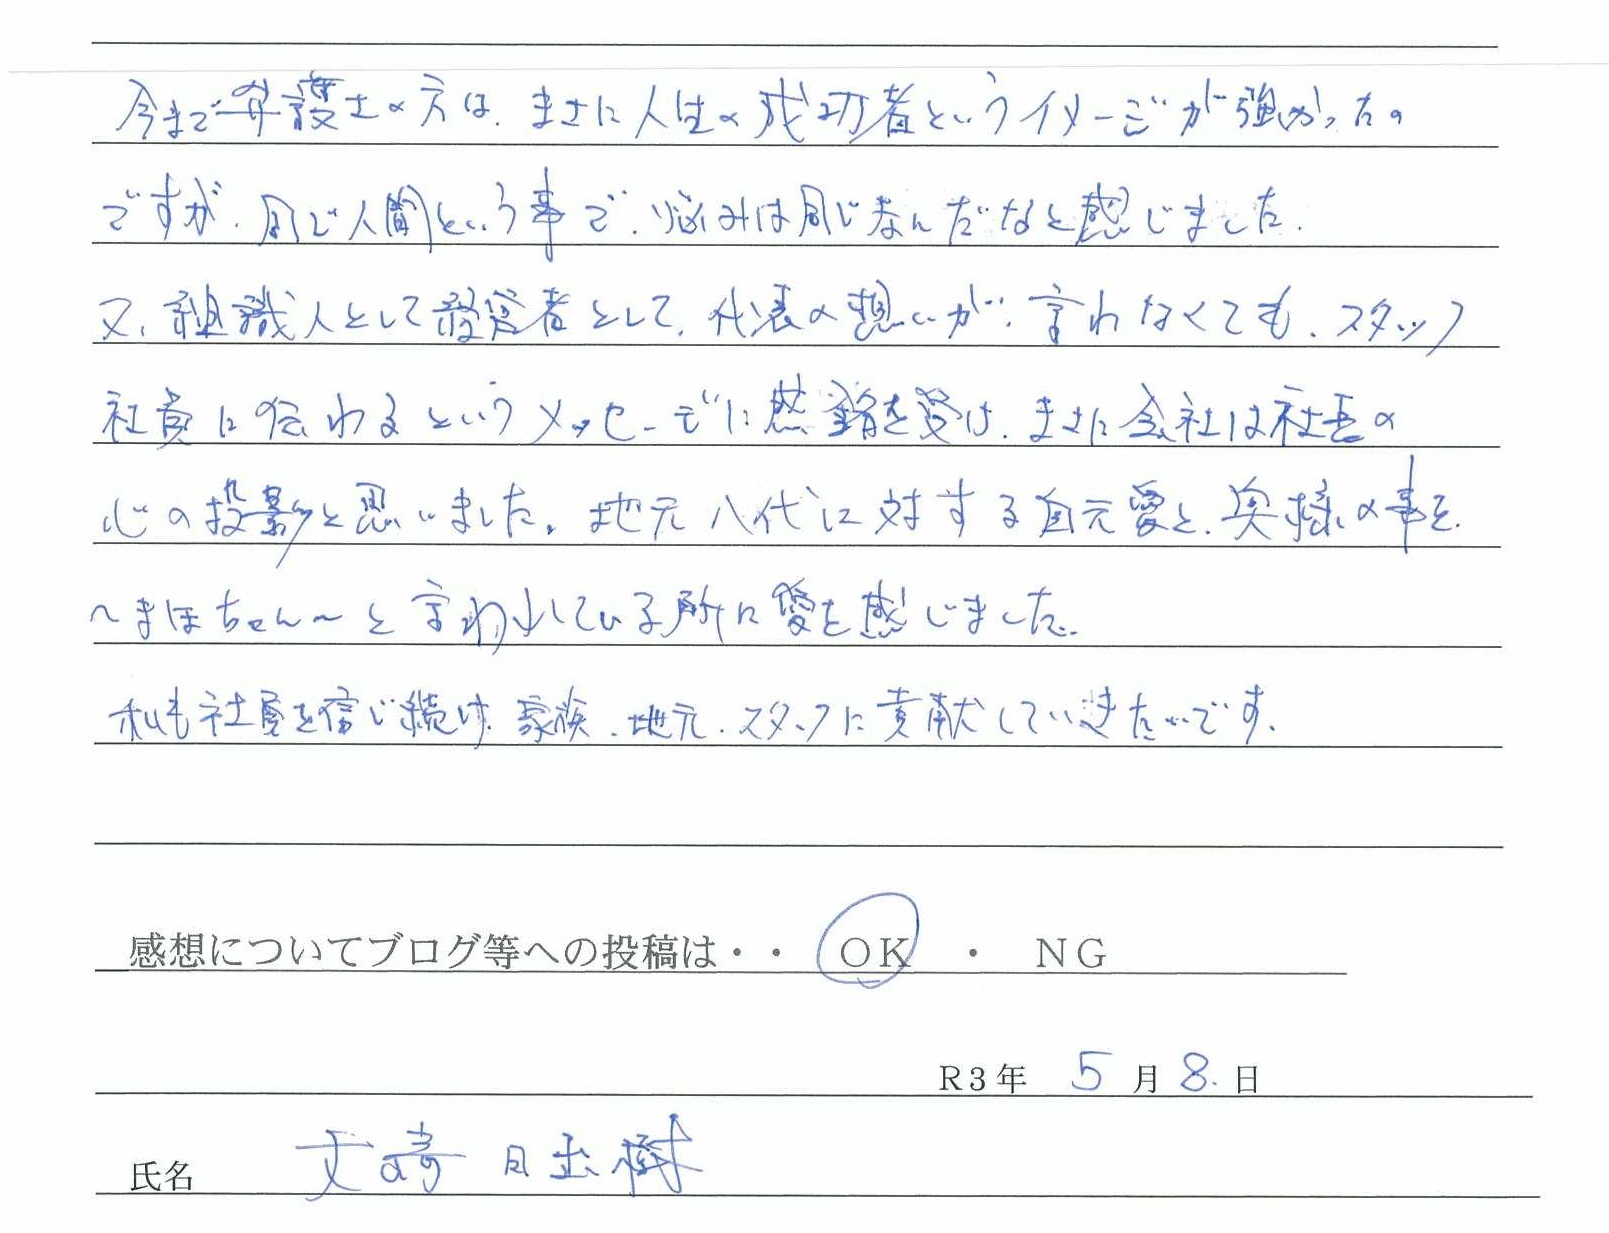 今まで弁護士の方は、まさに人生の成功者というイメージが強かったの
ですが、同じ人間という事で、悩みは同じなんだなと感じました。
又、組識人として経営者として、代表の想いが、言わなくても、スタッフ
社員に伝わるというメッセージに感銘を受け、まさに会社は社長の
心の投影と思いました。地元八代に対する自元愛と、奥様の事を
〜まほちゃん〜と言われている所に愛を感じました。
私も社員を信じ続け、家族、地元、スタッフに貢献していきたいです。
感想についてブログ等への投稿は・・ OK ・ NG
R3年 5月8日
氏名 樹